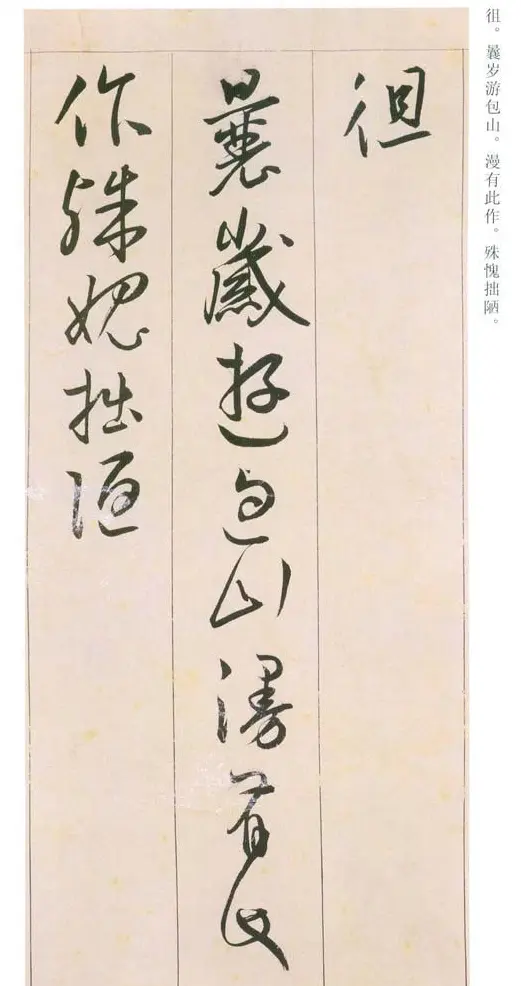 徂。曩岁游包山。漫有此作。殊愧拙陋。
徂
曩歲遊包山漫有此
作殊媿拙陋